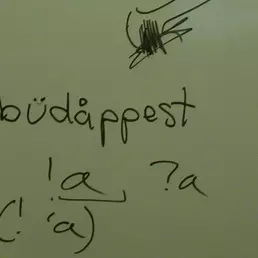 büdåppest
!a ?a
(! !a)